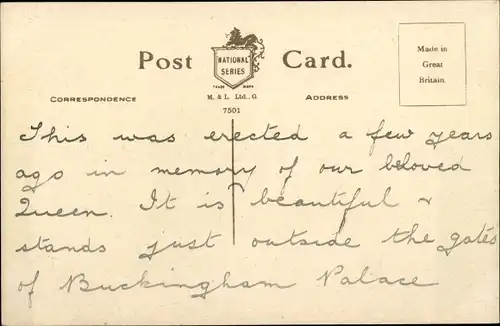 Post Card.
NATIONAL
SERIES
TRADE MARK
M. & L. Ltd., G.
7501
CORRESPONDENCE
ADDRESS
Made in
Great
Britain.
This was erected a few years
ago in memory of our beloved
Queen. It is beautiful &
stands just outside the gates
of Buckingham Palace